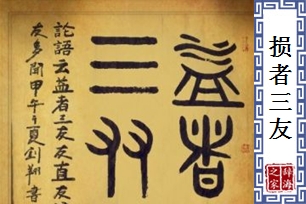 损者三友
辞海
之家
益者
三友
論語云益者三友友直友
友多聞甲午之夏